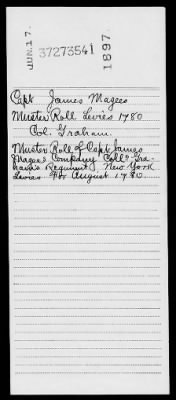 JUN. 17.
37273541
1897
Capt James Magees
Muster Roll Levies 1780
Col. Graham.
Muster Roll of Capt James
Magees Company Coll° Gra-
ham's Regiment New York
Levies for August 1780.